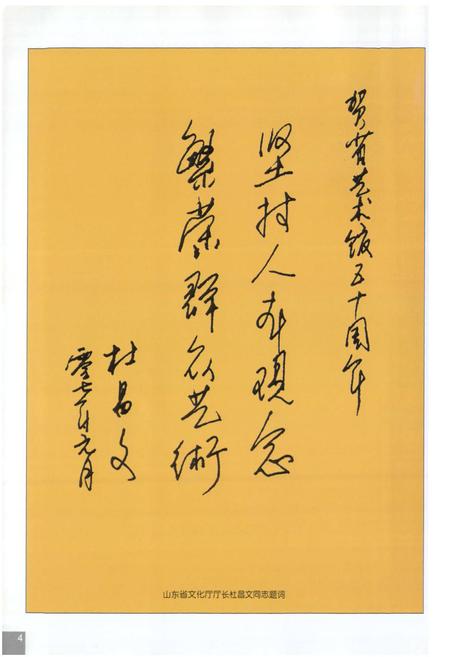 贺省艺术馆五十周年
坚持人本观念
繁荣群众艺術
杜昌文
零七年元月
山东省文化厅厅长杜昌文同志题词
4